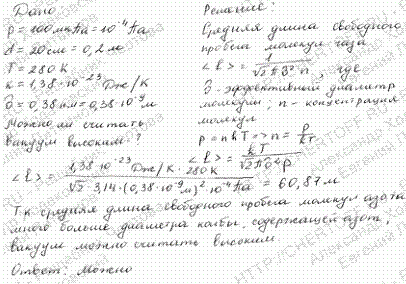 Дано
p = 100 мкПа = 10⁻⁴ Па
d = 20 см = 0,2 м
T = 280 К
k = 1,38 · 10⁻²³ Дж/К
∂ = 0,38 нм = 0,38·10⁻⁹ м
Можно ли считать
вакуум высоким?
Решение:
Средняя длина свободного
пробега молекул газа
<l> = 1/(√2 π ∂² n), где
∂ - эффективный диаметр
молекулы; n - концентрация
молекул
p = nkT => n = p/kT
<l> = kT/(√2 π ∂² p)
<l> = (1,38·10⁻²³ Дж/К · 280 К)/(√2 · 3,14·(0,38·10⁻⁹ м)² 10⁻⁴ Па) = 60,87 м
Т.к. средняя длина свободного пробега молекул азота
много больше диаметра колбы, содержащей азот,
вакуум можно считать высоким.
Ответ: Можно